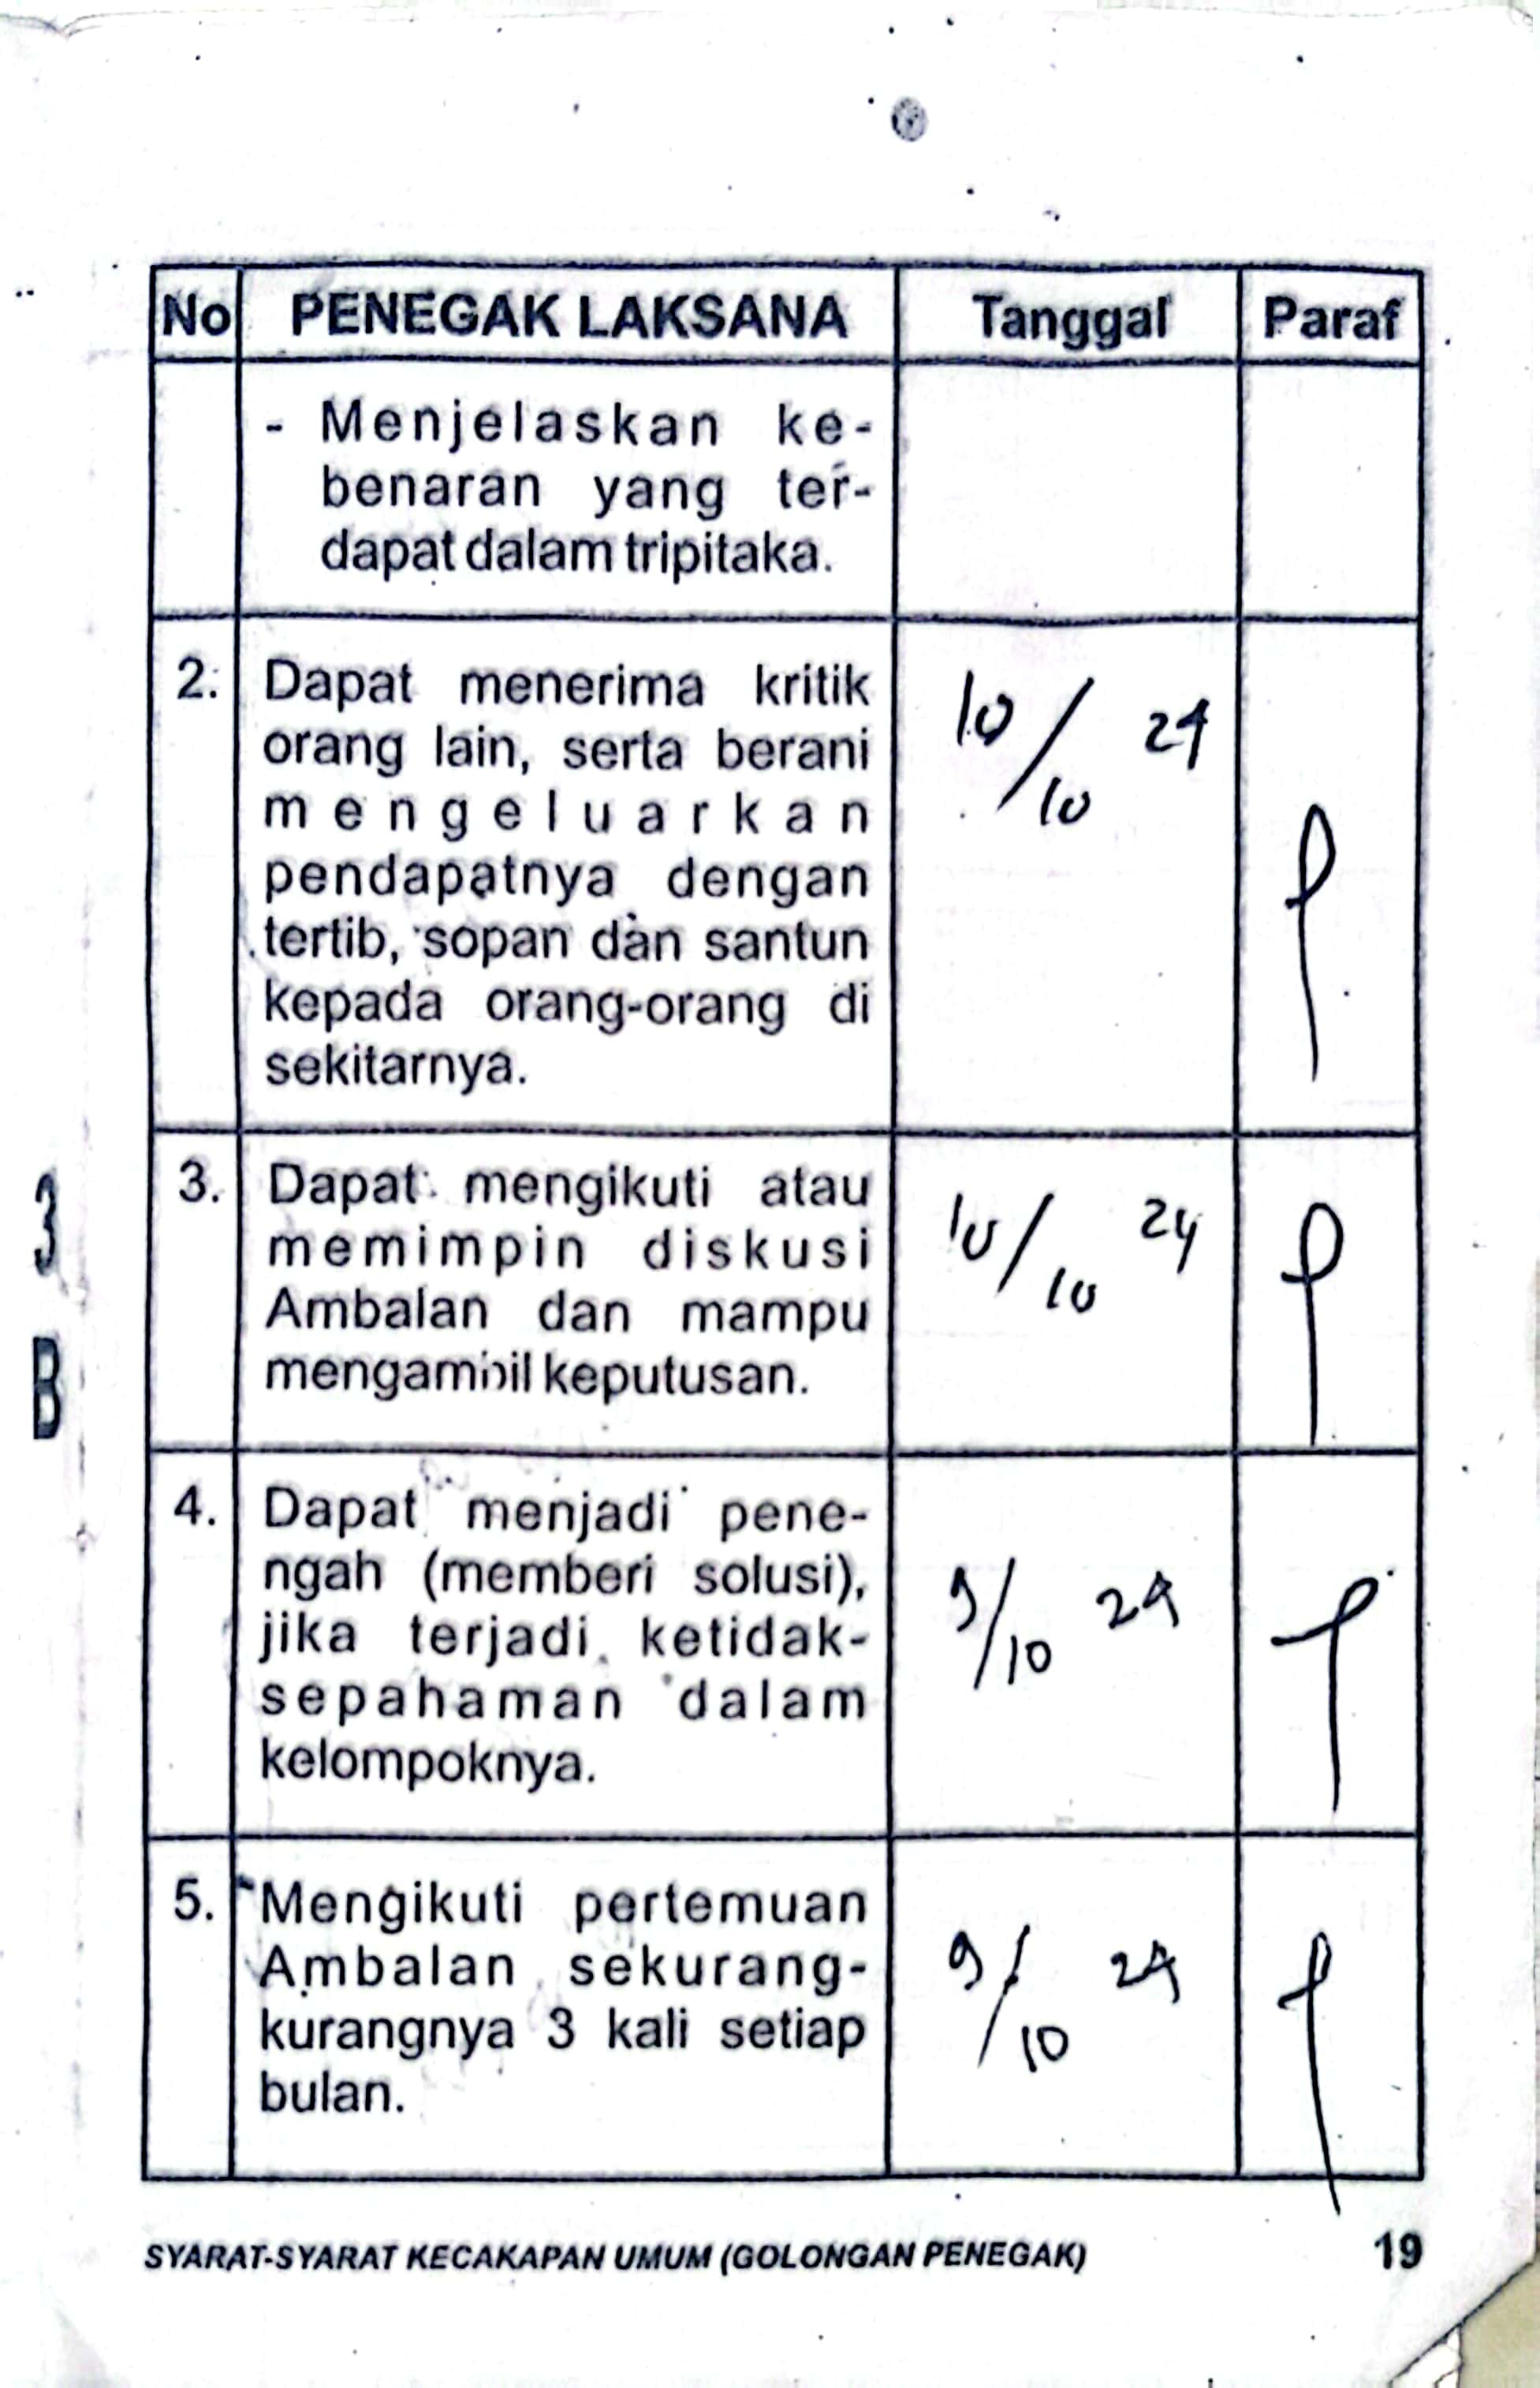 No PENEGAK LAKSANA Tanggal Paraf
- Menjelaskan ke-
benaran yang ter-
dapat dalam tripitaka.
2. Dapat menerima kritik
orang lain, serta berani
mengeluarkan
pendapatnya dengan
tertib, sopan dan santun
kepada orang-orang di
sekitarnya.
10/10 24
3. Dapat mengikuti atau
memimpin diskusi
Ambalan dan mampu
mengambil keputusan.
10/10 24
4. Dapat menjadi pene-
ngah (memberi solusi),
jika terjadi ketidak-
sepahaman dalam
kelompoknya.
9/10 24
5. Mengikuti pertemuan
Ambalan sekurang-
kurangnya 3 kali setiap
bulan.
9/10 24
3
B
SYARAT-SYARAT KECAKAPAN UMUM (GOLONGAN PENEGAK) 19